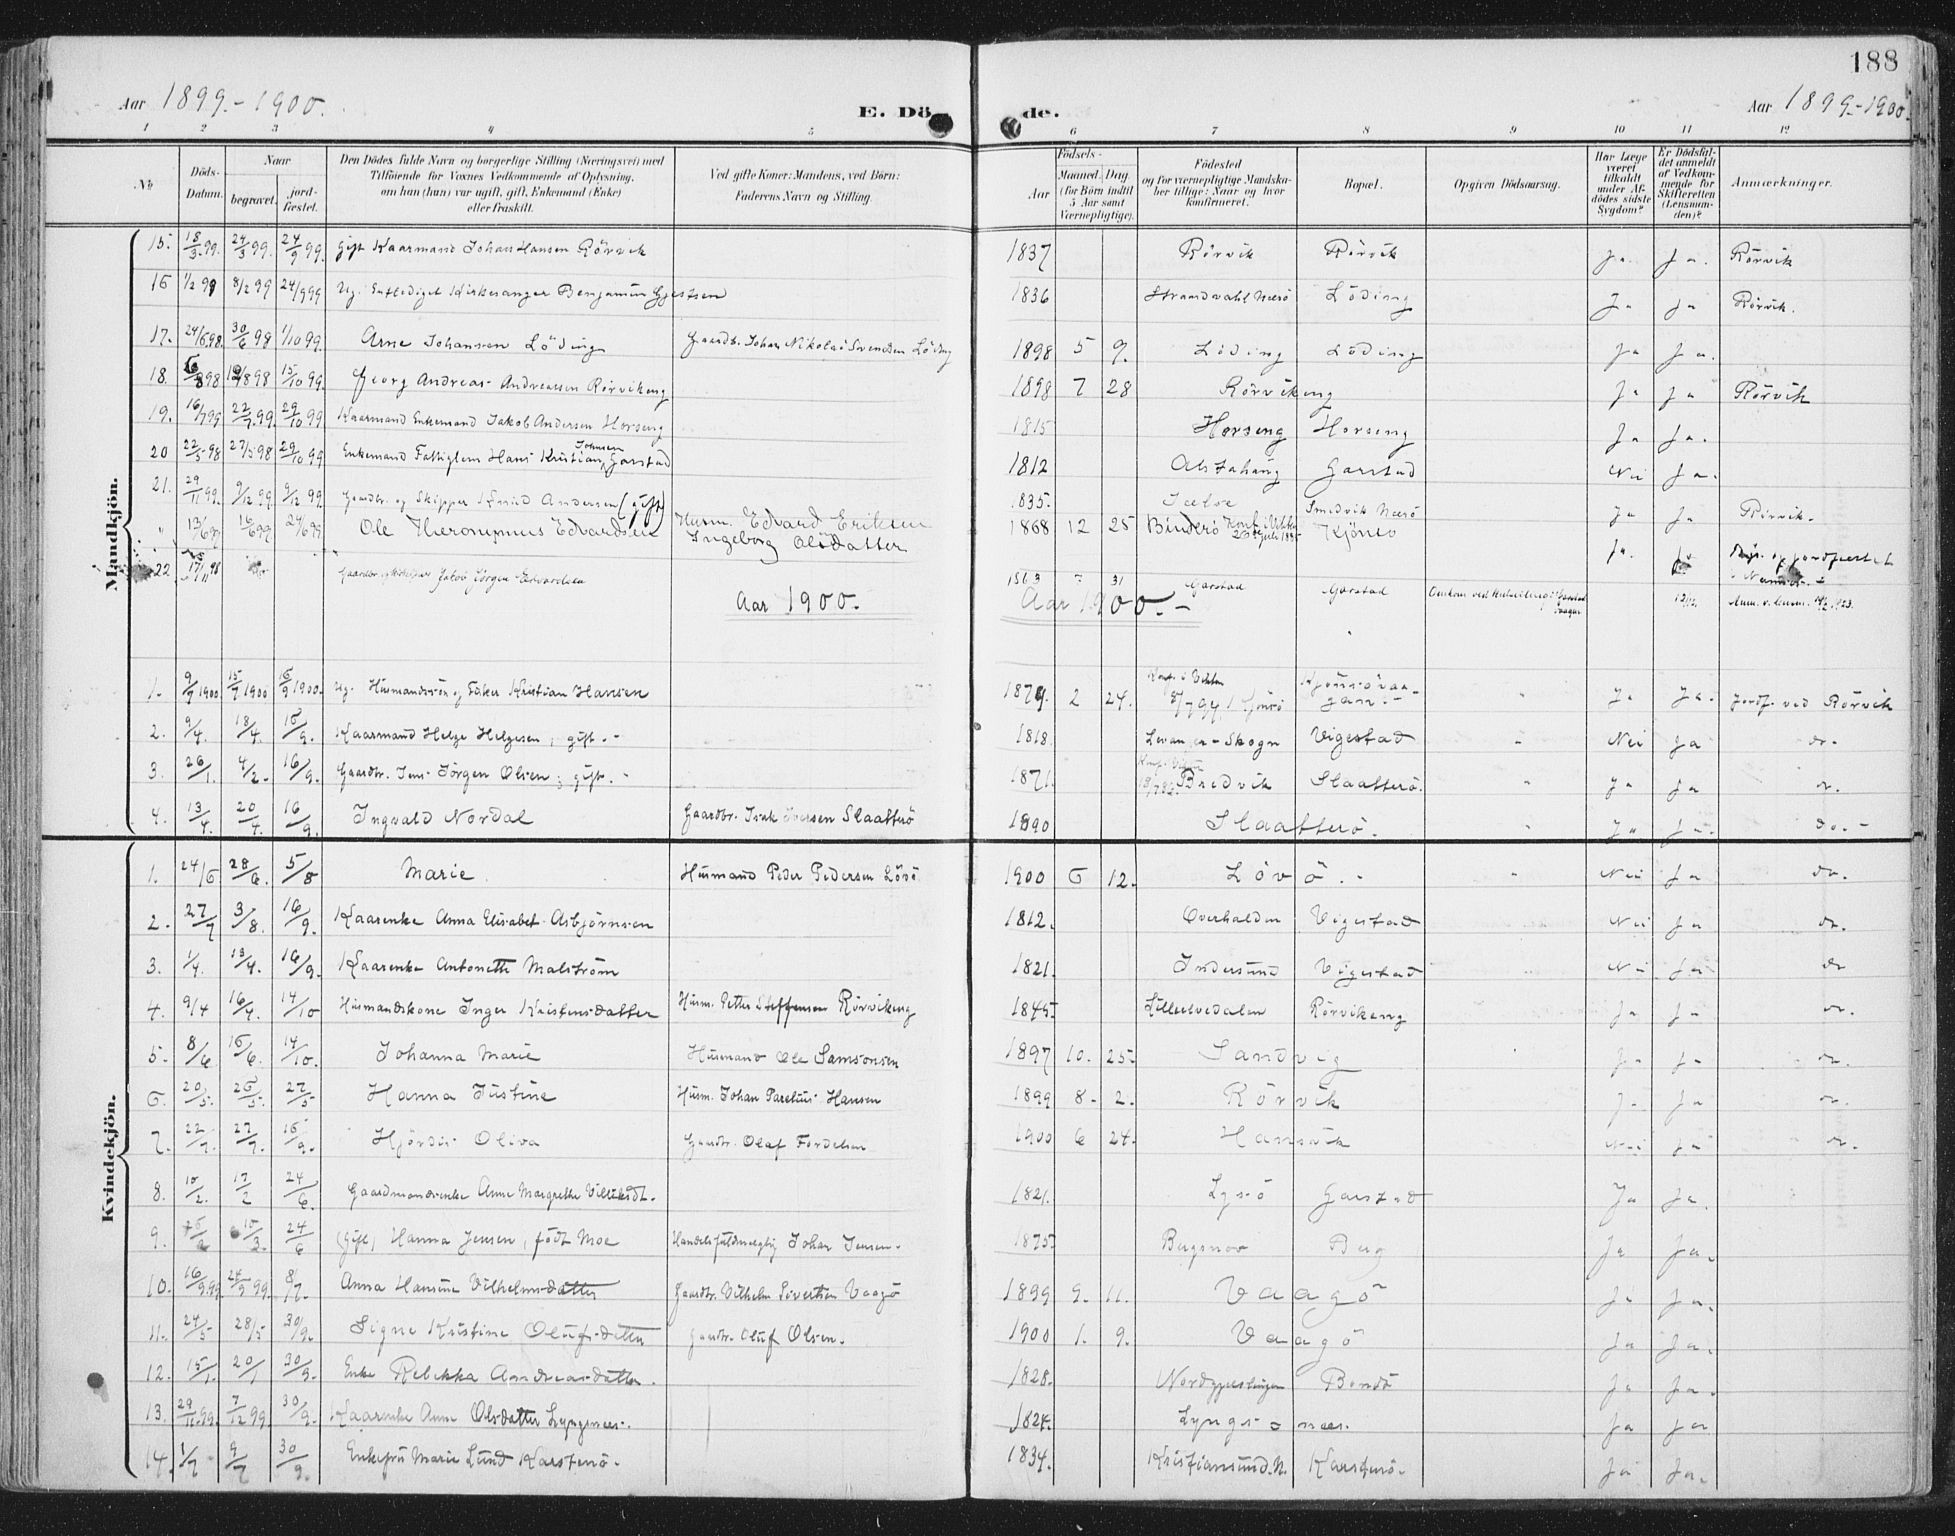 188
Aar 1899.-1900.
E. Dö
de.
Aar 1899.-1900.
1 2 3 4 5 6 7 8 9 10 11 12
No.
Döds-Datum.
Naar
begravet.
jord-fæstet.
Den Dödes fulde Navn og borgerlige Stilling (Næringsvei) med
Tilföiende for Voxnes Vedkommende af Oplysning,
om han (hun) var ugift, gift, Enkemand (Enke)
eller fraskilt.
Ved gifte Koner: Mandens, ved Börn:
Faderens Navn og Stilling.
Födsels-
Aar
Maaned. Dag.
(for Börn indtil
5 Aar samt
Værnepligtige).
Födested
og for værnepligtige Mandska-
ber tillige: Naar og hvor
konfirmeret.
Bopæl.
Opgiven Dödsaarsag.
Har Læge
været
tilkaldt
under Af-
dödes sidste
Sygdom?
Er Dödsfal-
det anmeldt
af Vedkom-
mende for
Skifteretten
(Lensman-
den)?
Anmærkninger.
Mandkjön.
15. 18/3 99. 24/3 99. 24/9 99. Gift Kaarmand Johan Hansen Rörvik 1837 Rörvik Rörvik Ja. Ja. Rörvik
16 1/2 99 8/2 99 24/9 99 Ug. Entlediget Kirkesanger Benjamin Gjertsen 1836 Strandvahl Nærö Löding Ja Ja Rörvik.
17. 24/6 98. 30/6 98 1/10 99. Arne Johansen Löding Gaardb. Johan Nikolai Svendsen Löding 1898 5 9. Löding Löding Ja Ja.
18. 98 98 15/10 99. Georg Andreas Andreassen Rörvikeng 1898 7 28 Rörvikeng Ja Ja Rörvik
19. 16/7 99 22/7 99. 29/10 99 Kaarmand Enkemand Jakob Andersen Horseng 1815 Horseng Horseng Ja Ja.
20 22/5 98 27/5 98 29/10 99 Enkemand Fattiglem Hans Kristian Johnsen Garstad 1812 Alstahaug Garstad Nei Ja.
21. 29/11 99. 9/12 99. 9/12 99. Gaardbr. og Skipper Andersen (gift) 1835. Smedvik Nærö Ja Ja Rörvik.
" 13/6 99 16/6 99 24/6 99 Ole Hieronymus Edvardsen Husm. Edvard Eriksen Ingeborg Olsdatter 1868 12 25 Binderö Kjönsö Ja.
22 17/11 98 Jakob Jörgen Edvardsen 1863 7 31 Garstad Garstad
Aar 1900.
Aar 1900.-
1. 9/7 1900 15/7 1900 16/9 1900. Ug. Husmandssön og Fisker Kristian Hansen 1879. 2 24. Ja Ja. Jordf. ved Rörvik
2. 9/4. 18/4. 16/9. Kaarmand Helge Helgesen, gift.- 1818. Levanger-Skogn Vigestad Nei Ja do.
3. 26/1. 4/2. 16/9. Gaardbr. Jens Jörgen Olsen; gift.- 1871. Bredvik Slaatterö. Ja Ja do.
4. 13/4. 20/4. 16/9. Ingvald Nordal Gaardbr. Isak Iversen Slaatterö 1890 Slaatterö. Ja Ja. do.-
Kvindekjön.
1. 24/6 28/6. 5/8 Marie. Husmand Peder Pedersen Lövö. 1900 6 12. Lövö.- Nei Ja do.
2. 27/7 3/8. 16/9. Kaarenke Anna Elisabet Asbjörnsen 1812. Overhalden Vigestad Nei Ja do.
3. 1/4. 13/4. 16/9. Kaarenke Antonette Malström 1821. Indersund Vigestad Nei Ja do
4. 9/4 16/4. 14/10 Husmandskone Inger Kristensdatter Husm. Petter Steffensen Rörvikeng 1845. Lilleelvedalen Rörvikeng Ja Ja do.
5. 8/6 16/6. 14/10. Johanna Marie Husmand Ole Samsonsen 1897 10. 25. Sandvig Ja Ja do
6. 20/5. 26/5. 27/5 Hanna Justine Husm. Johan Parelius Hansen 1899 8- 2. Rörvik Ja Ja do.
7. 22/7. 27/7. 16/9. Hjördis Oliva Gaardbr. Olaf Fordelsen 1900 6 24. Hansvik Nei Ja do.
8. 10/2. 17/2 24/6 Gaardmandsenke Anne Margrethe Villiksdt. 1821. Lysö Garstad Ja Ja.
9. 10/3. 24/6 Gift, Hanna Jensen, födt Moe Handelsfuldmægtig Johan Jensen. 1875 Bergsnov Berg Ja Ja.
10. 16/9 99. 24/9 99. 8/7. Anna Hansine Vilhelmsdatter Gaardbr. Vilhelm Sivertsen Vaagö 1899 9. 11. Vaagö Ja Ja.
11. 24/5 28/5 30/9. Signe Kristine Olufsdatter Gaardbr. Oluf Olsen. 1900 1. 9. Vaagö Ja Ja.
12. 15/1. 20/1 30/9. Enke Rebekka Andreasdatter. 1828. Bondö Ja Ja.
13. 29/11 99. 7/12 99. 30/9. Kaarenke Anne Olsdatter Lyngsnæs. 1824. Lyngsnæs. Ja Ja
14. 1/7 9/7 30/9. Enkefru Marie Lund Karstenö. 1834. Kristiansund N. Karstenö. Ja Ja.